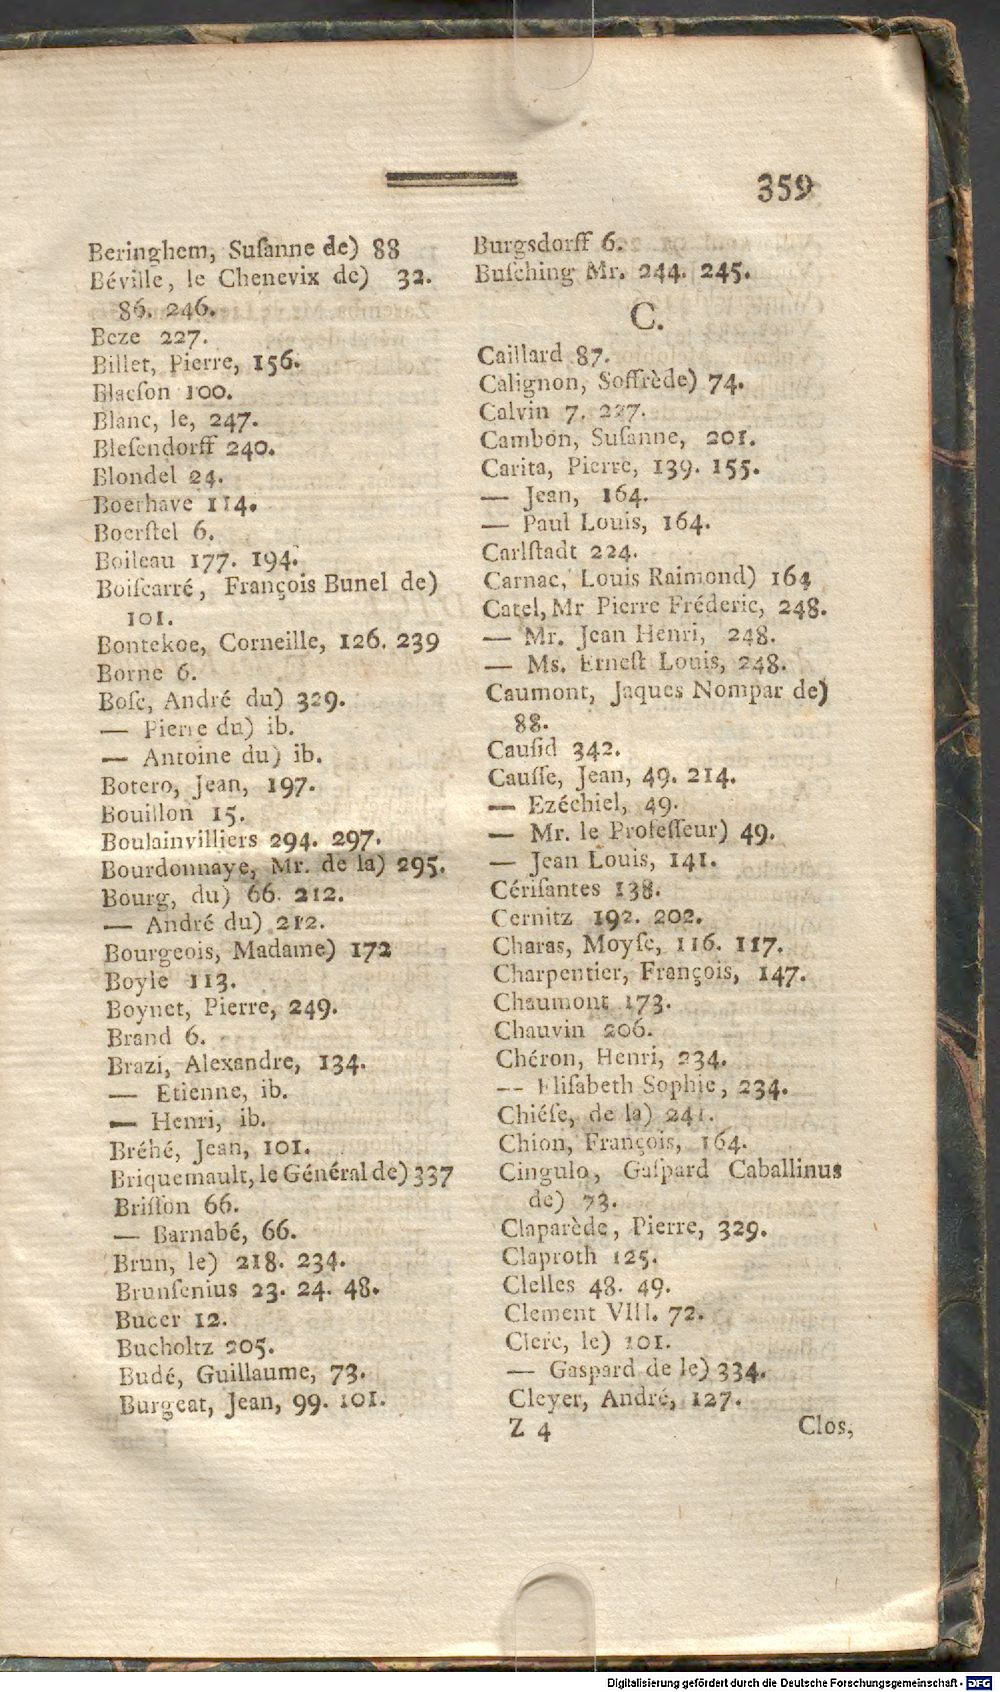 359
Beringhem, Suſanne de) 88
Béville, le Chenevix de) 32.
86. 246.
Beze 227.
Billet, Pierre, 156.
Blacſon 100.
Blanc, le, 247.
Bleſendorff 240.
Blondel 24.
Boerhave 114.
Boerſtel 6.
Boileau 177. 194.
Boiſcarré, François Bunel de)
101.
Bontekoe, Corneille, 126. 239
Borne 6.
Boſc, André du) 329.
— Pierre du) ib.
— Antoine du) ib.
Botero, Jean, 197.
Bouillon 15.
Boulainvilliers 294. 297.
Bourdonnaye, Mr. de la) 295.
Bourg, du) 66. 212.
— André du) 212.
Bourgeois, Madame) 172
Boyle 113.
Boynet, Pierre, 249.
Brand 6.
Brazi, Alexandre, 134.
— Etienne, ib.
— Henri, ib.
Bréhé, Jean, 101.
Briquemault, le Général de) 337
Briſſon 66.
— Barnabé, 66.
Brun, le) 218. 234.
Brunſenius 23. 24. 48.
Bucer 12.
Bucholtz 205.
Budé, Guillaume, 73.
Burgeat, Jean, 99. 101.
Burgsdorff 6.
Buſching Mr. 244. 245.
C.
Caillard 87.
Calignon, Soffrède) 74.
Calvin 7. 227.
Cambon, Suſanne, 201.
Carita, Pierre, 139. 155.
— Jean, 164.
— Paul Louis, 164.
Carlſtadt 224.
Carnac, Louis Raimond) 164
Catel, Mr Pierre Fréderic, 248.
— Mr. Jean Henri, 248.
— Ms. Erneſt Louis, 248.
Caumont, Jaques Nompar de)
88.
Cauſid 342.
Cauſſe, Jean, 49. 214.
— Ezéchiel, 49.
— Mr. le Profeſſeur) 49.
— Jean Louis, 141.
Cériſantes 138.
Cernitz 192. 202.
Charas, Moyſe, 116. 117.
Charpentier, François, 147.
Chaumont 173.
Chauvin 206.
Chéron, Henri, 234.
-- Eliſabeth Sophie, 234.
Chiéſe, de la) 241.
Chion, François, 164.
Cingulo, Gaſpard Caballinus
de) 73.
Claparède, Pierre, 329.
Claproth 125.
Clelles 48. 49.
Clement VIII. 72.
Clerc, le) 101.
— Gaspard de le) 334.
Cleyer, André, 127.
Z 4 Clos,
Digitalisierung gefördert durch die Deutsche Forschungsgemeinschaft - DFG